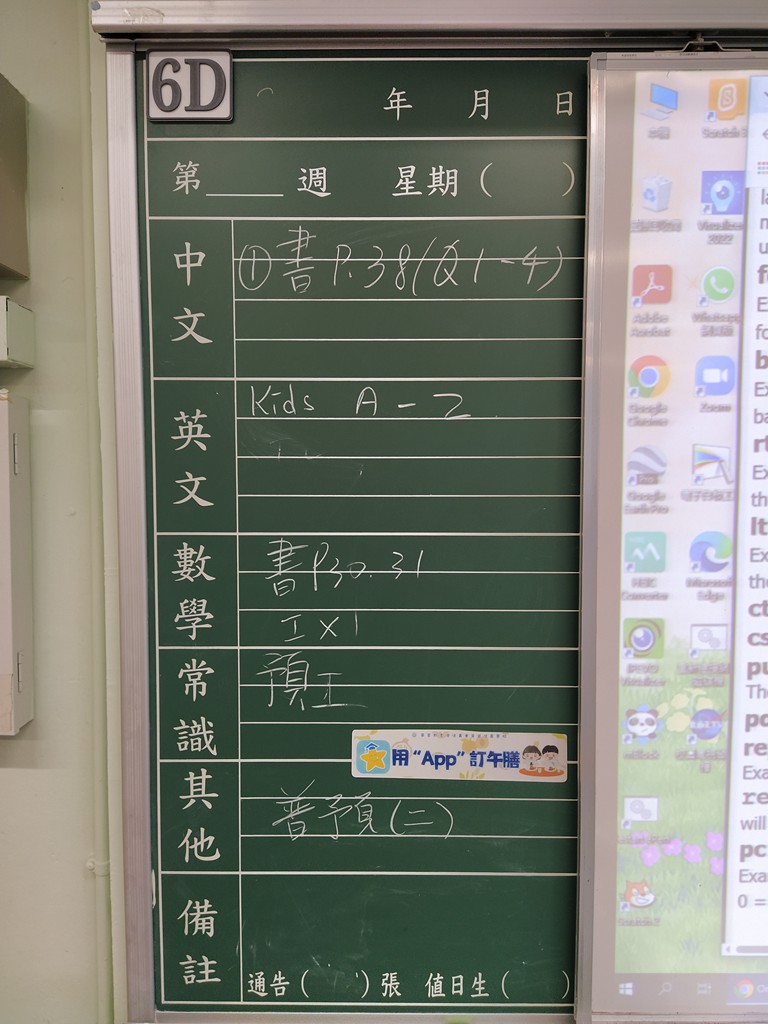 6D
年 月 日
第____週 星期( )
中文
①書P.38(Q1-4)
英文
Kids A-Z
數學
書P30.31
工×1
常識
預工
用“App”訂午膳
其他
普預(二)
備註
通告( )張 值日生( )
Scratch 3
Adobe Acrobat
Google Chrome
Zoom
Google Earth Pro
Microsoft Edge
Scratch 2
rt
lt
ct
cs
pu
The
re
Exa
re
will
pc
Exa
0 =